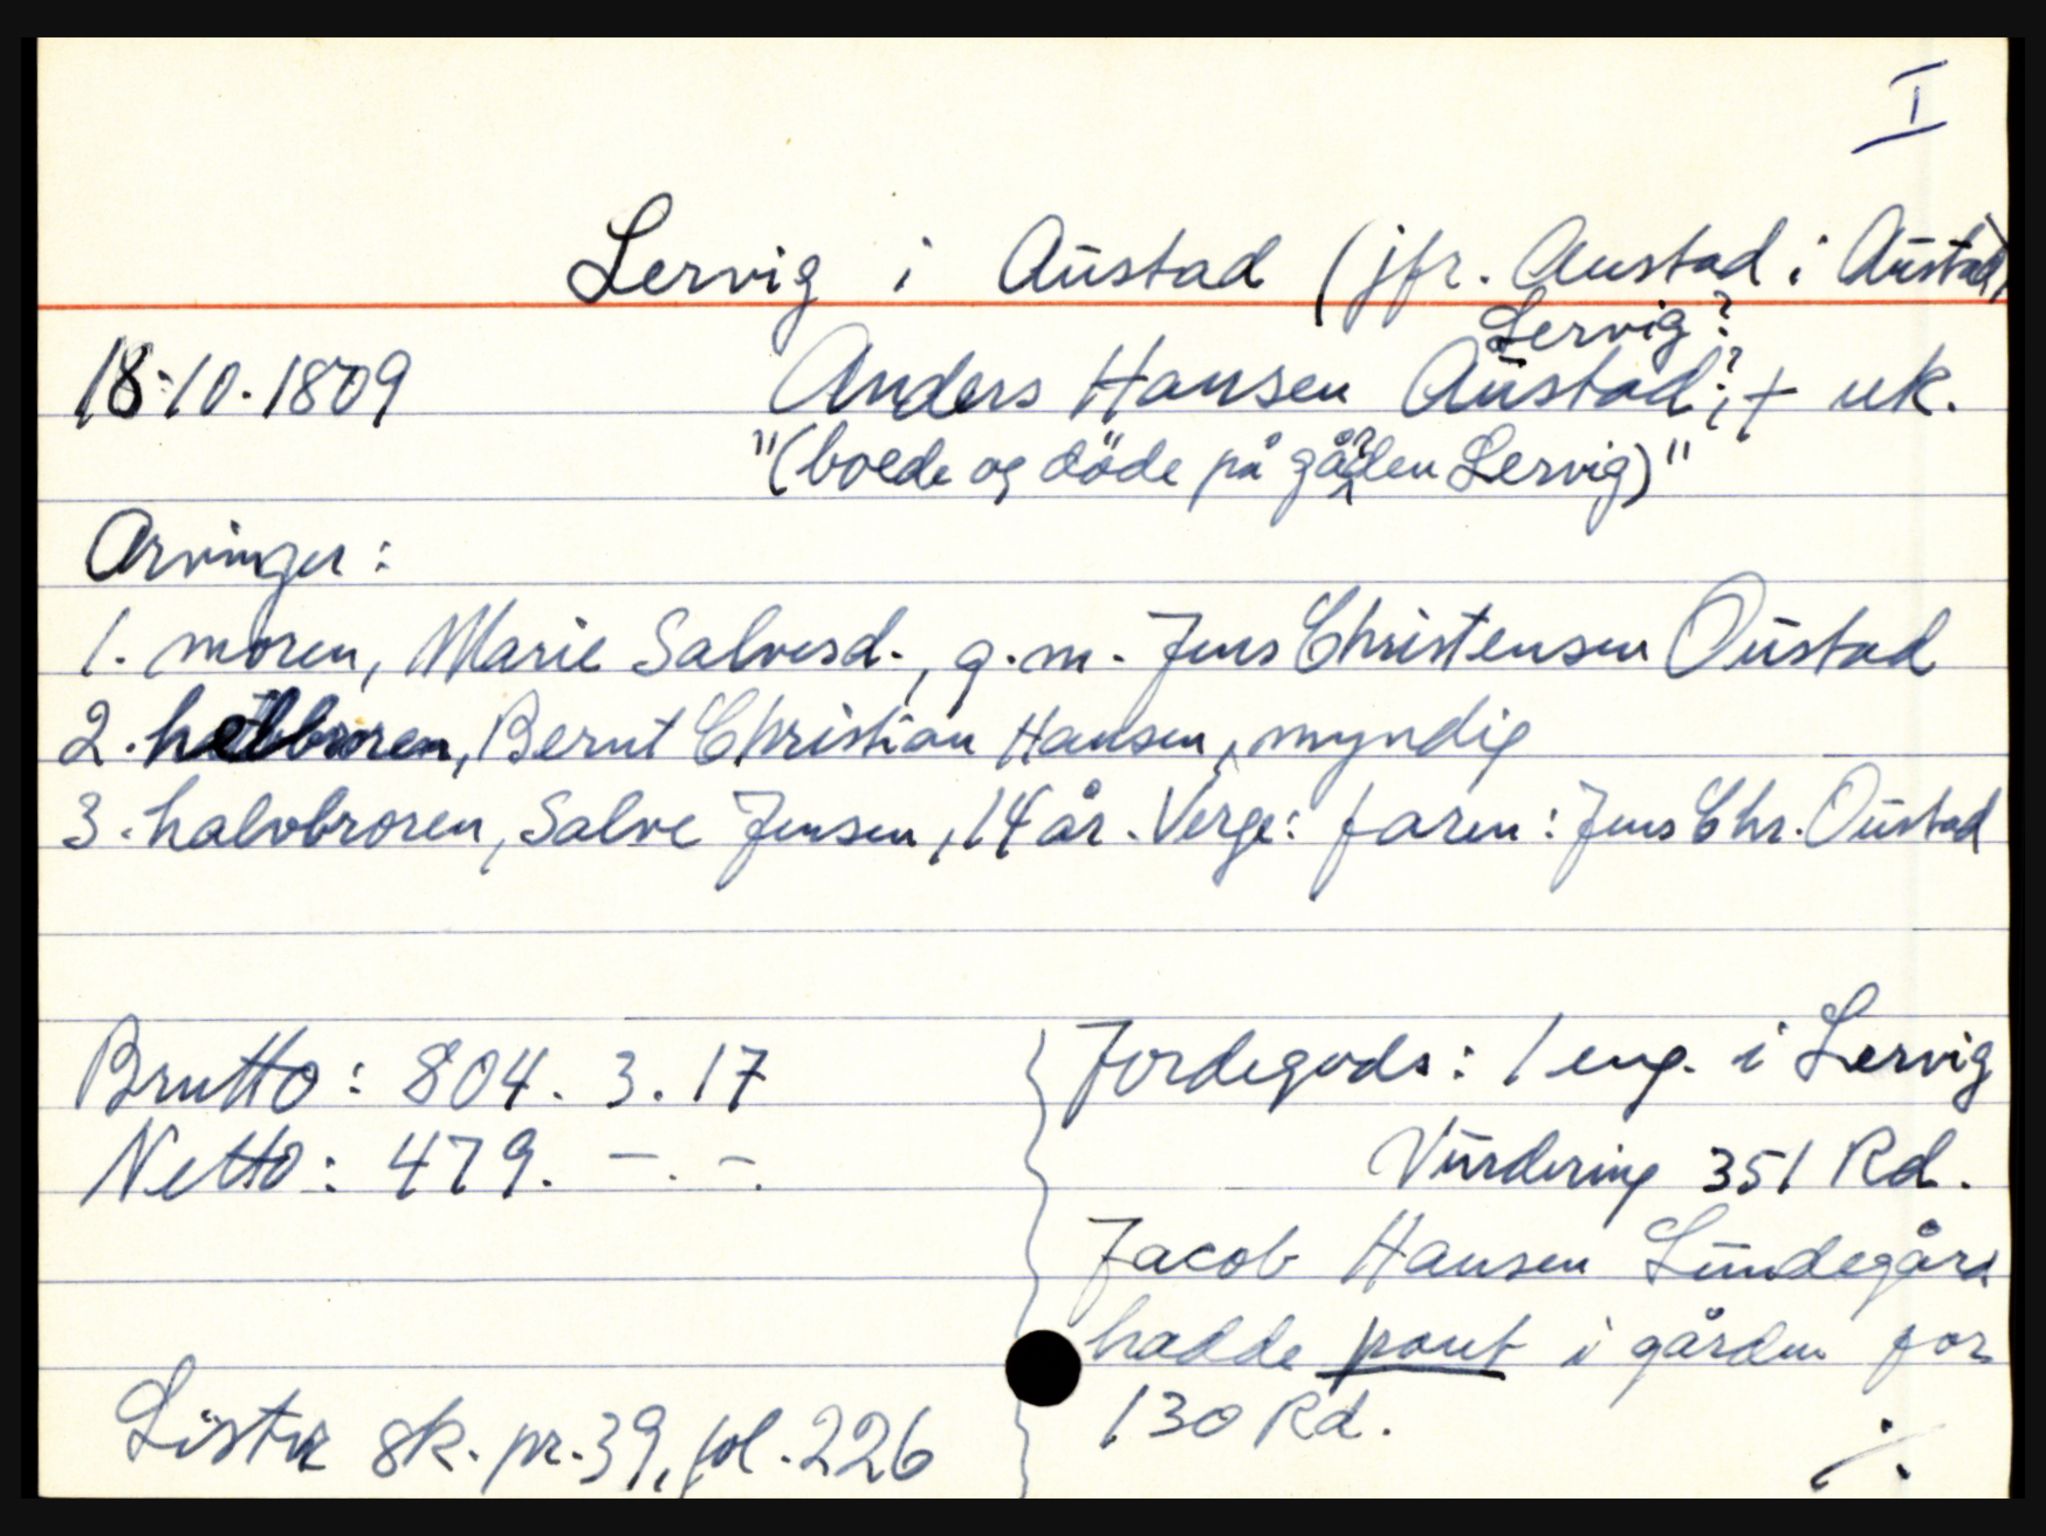 I
Lervig i Austad (jfr. Austad i Austad)
Lervig?
18.10.1809 Anders Hansen Austad?, + uk.
"(boede og döde på gården Lervig)"
Arvinger:
1. moren, Marie Salvesd., g.m. Jens Christensen Oustad
2. helbroren, Bernt Christian Hansen, myndig
3. halvbroren, Salve Jensen, 14 år. Verge: faren: Jens Chr. Oustad
Brutto: 804. 3. 17
Netto: 479. –. –.
Jordegods: 1 eng. i Lervig
Vurdering 351 Rd.
Jacob Hansen Lundegård
hadde pant i gården for
130 Rd.
Lister sk. pr. 39, fol. 226
./.